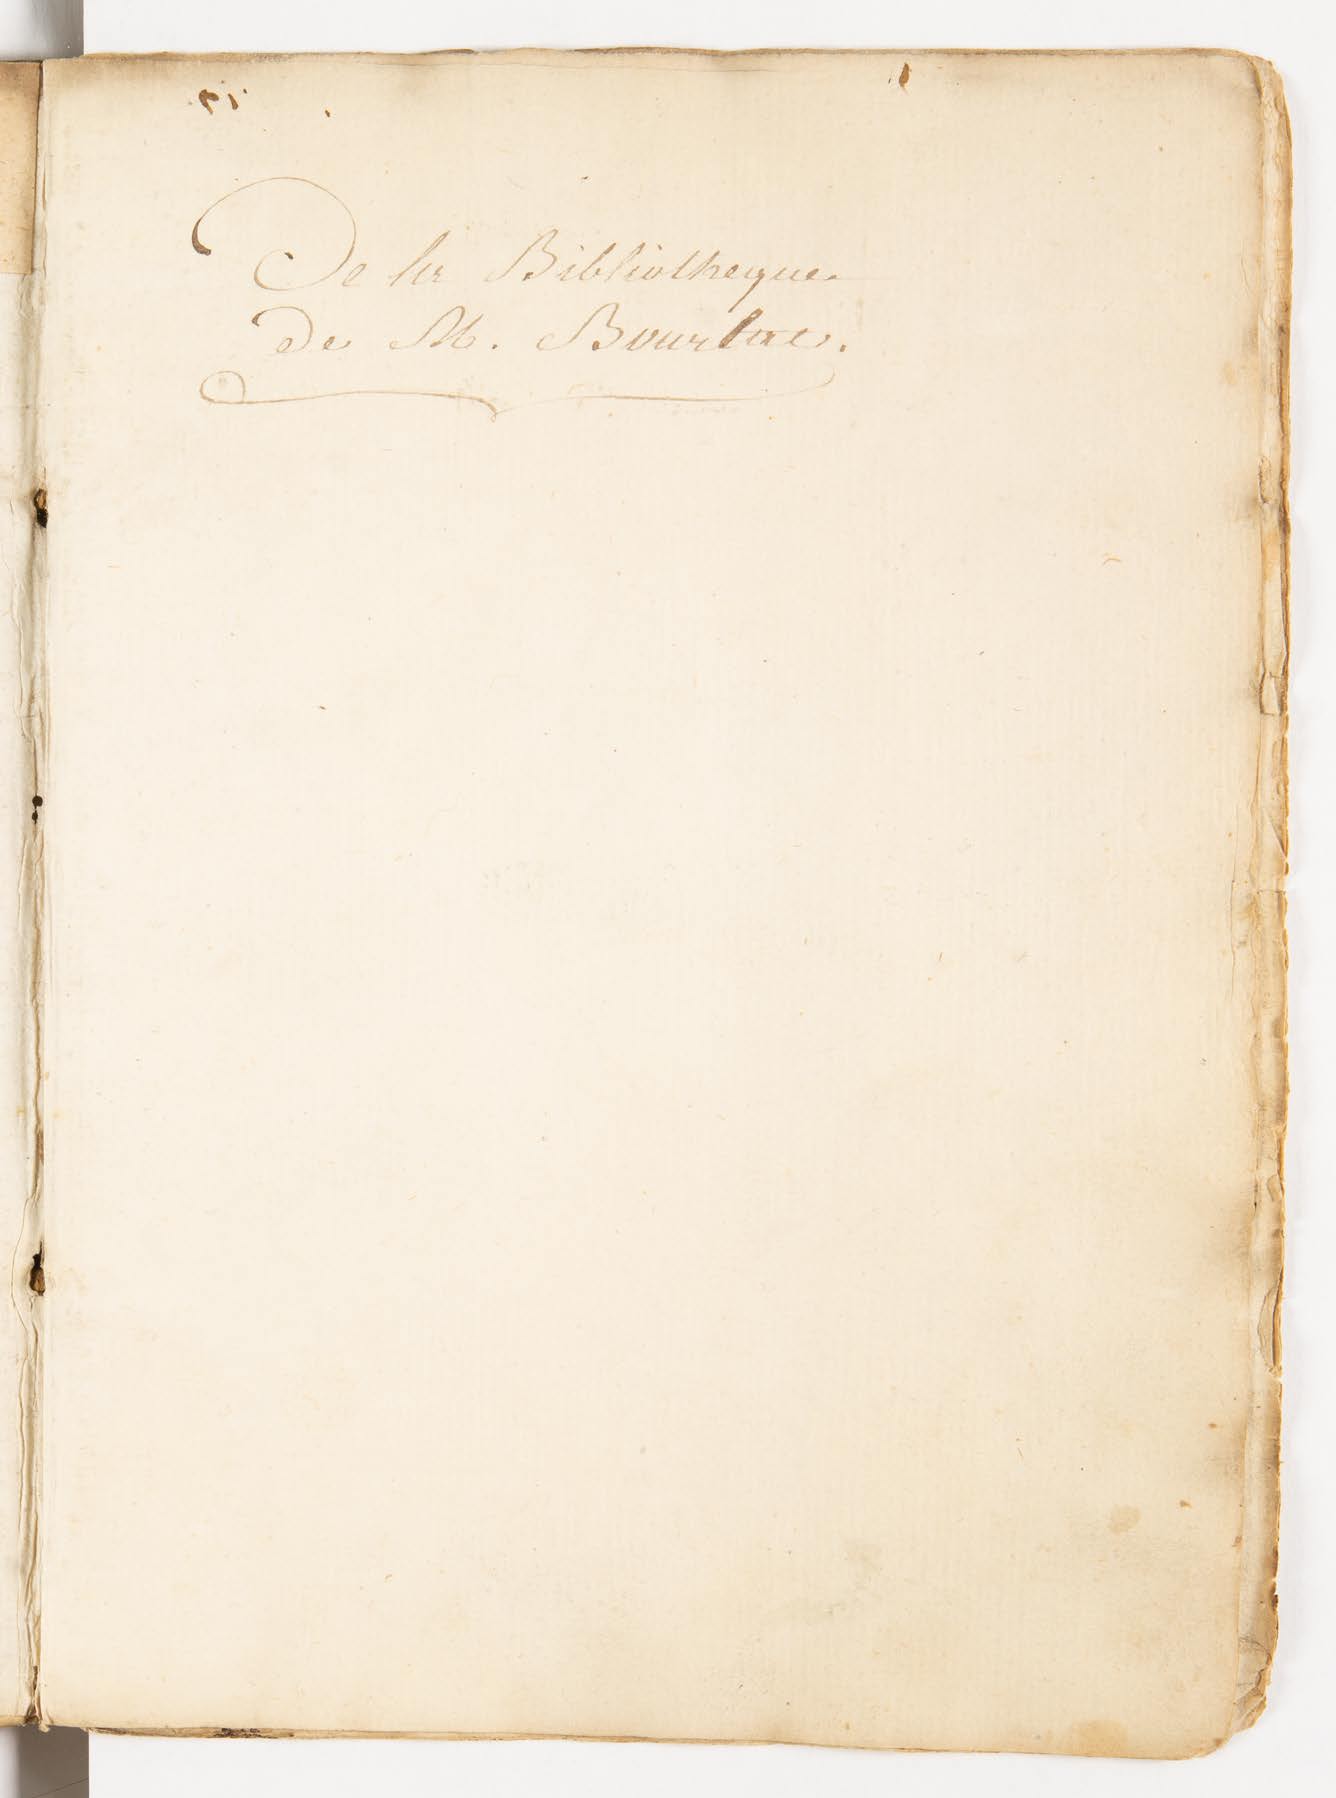 De la Bibliotheque
de M. Bourlac.